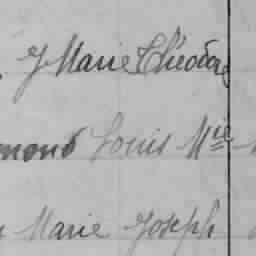 J Marie Théodore
mond Louis Mie
Marie Joseph